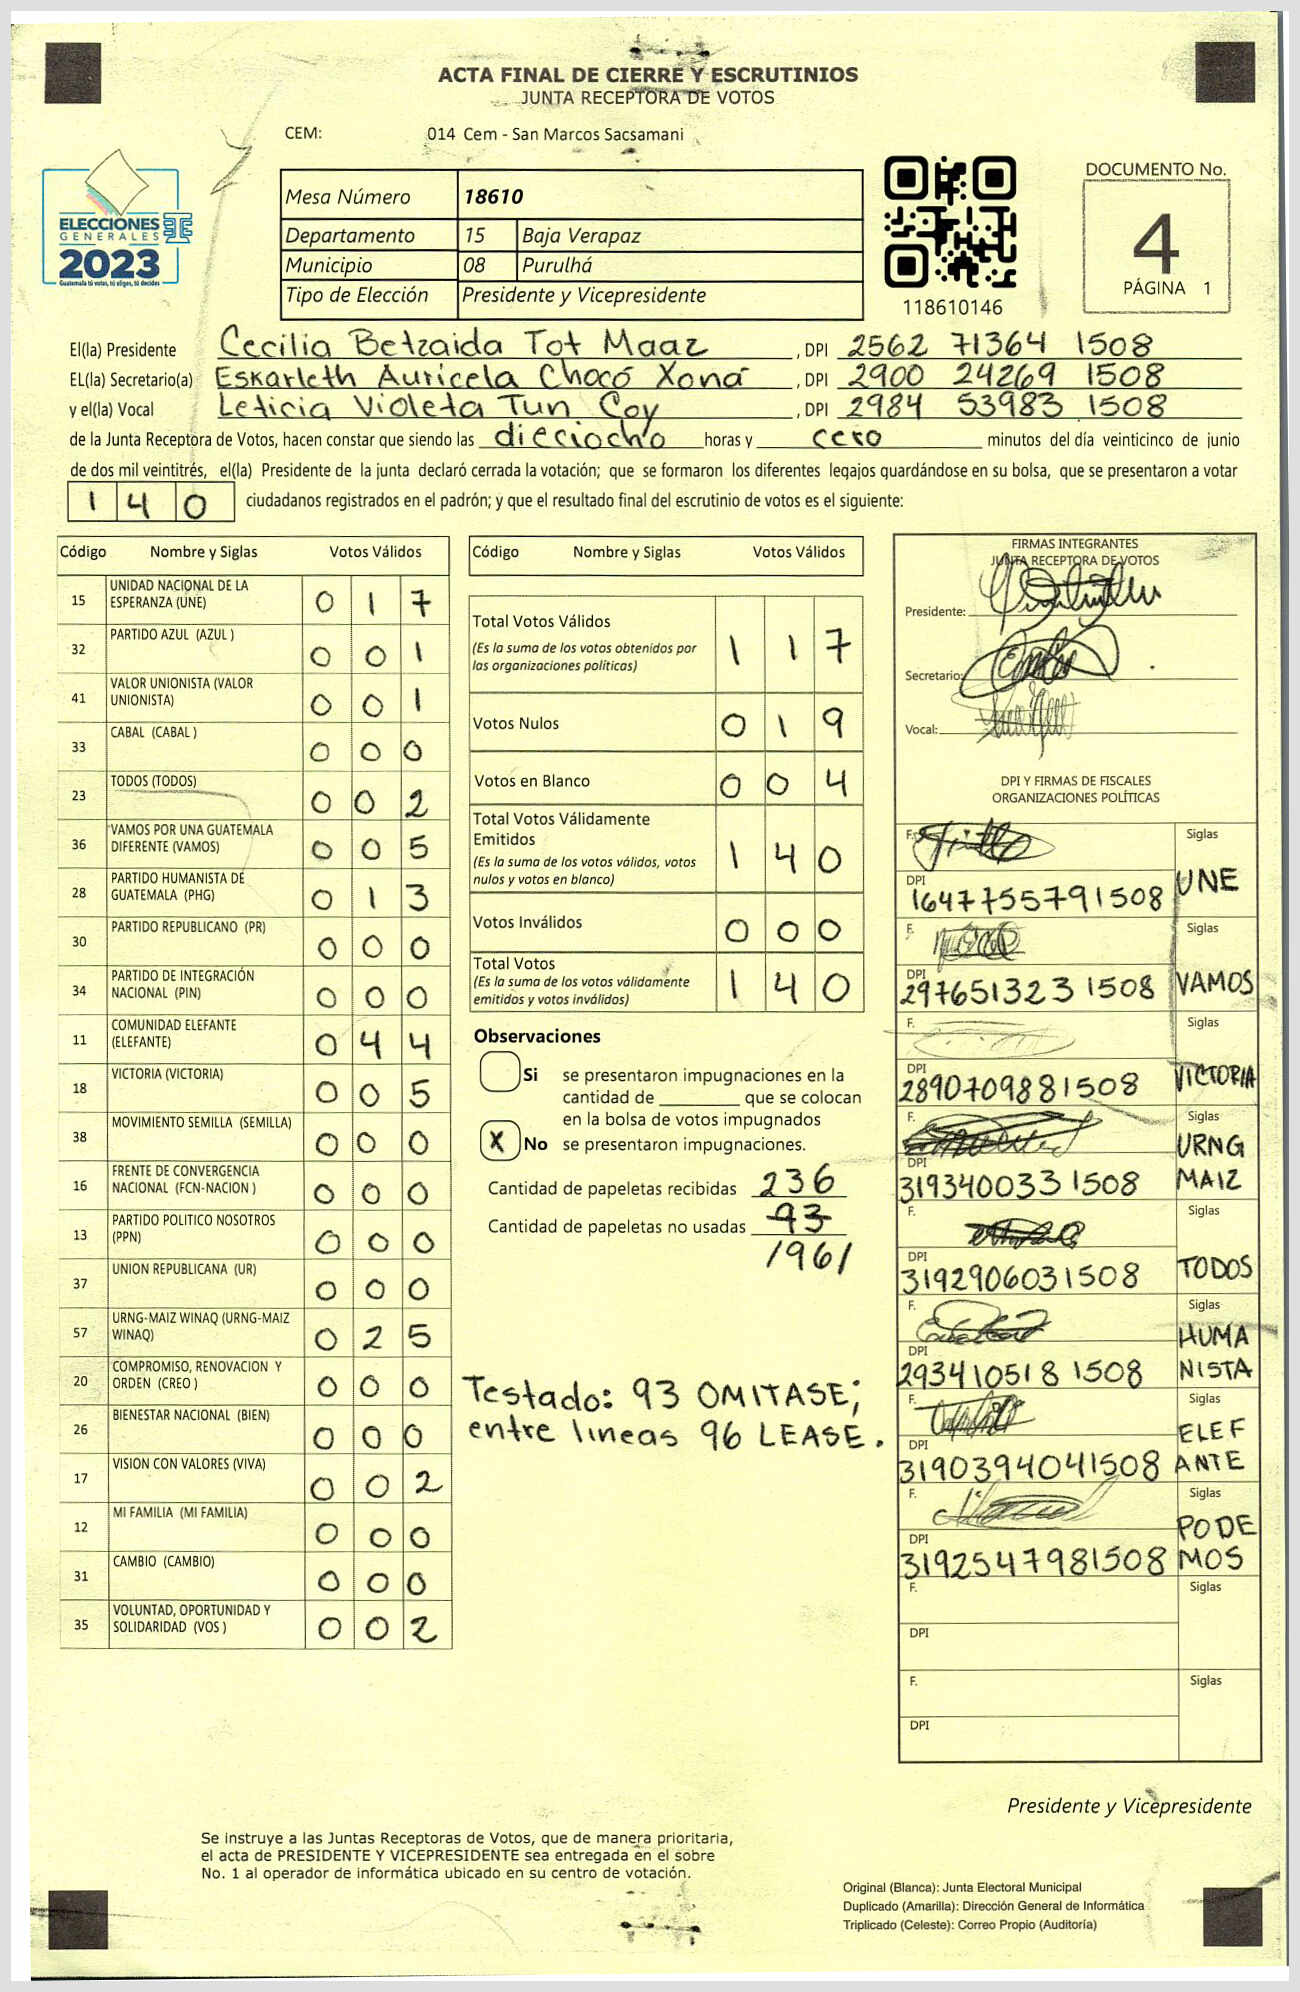 ACTA FINAL DE CIERRE Y ESCRUTINIOS
JUNTA RECEPTORA DE VOTOS
CEM: 014 Cem - San Marcos Sacsamani
ELECCIONES
GENERALES
2023
Guatemala tú votas, tú eliges, tú decides
Mesa Número 18610
Departamento 15 Baja Verapaz
Municipio 08 Purulhá
Tipo de Elección Presidente y Vicepresidente
118610146
DOCUMENTO No.
4
PÁGINA 1
El(la) Presidente Cecilia Betzaida Tot Maaz, DPI 2562 71364 1508
EL(la) Secretario(a) Eskarleth Auricela Chocó Xoná, DPI 2900 24269 1508
y el(la) Vocal Leticia Violeta Tun Coy, DPI 2984 53983 1508
de la Junta Receptora de Votos, hacen constar que siendo las dieciocho horas y cero minutos del día veinticinco de junio
de dos mil veintitrés, el(la) Presidente de la junta declaró cerrada la votación; que se formaron los diferentes legajos guardándose en su bolsa, que se presentaron a votar
140 ciudadanos registrados en el padrón; y que el resultado final del escrutinio de votos es el siguiente:
Código Nombre y Siglas Votos Válidos
15 UNIDAD NACIONAL DE LA ESPERANZA (UNE) 0 1 7
32 PARTIDO AZUL (AZUL ) 0 0 1
41 VALOR UNIONISTA (VALOR UNIONISTA) 0 0 1
33 CABAL (CABAL ) 0 0 0
23 TODOS (TODOS) 0 0 2
36 VAMOS POR UNA GUATEMALA DIFERENTE (VAMOS) 0 0 5
28 PARTIDO HUMANISTA DE GUATEMALA (PHG) 0 1 3
30 PARTIDO REPUBLICANO (PR) 0 0 0
34 PARTIDO DE INTEGRACIÓN NACIONAL (PIN) 0 0 0
11 COMUNIDAD ELEFANTE (ELEFANTE) 0 4 4
18 VICTORIA (VICTORIA) 0 0 5
38 MOVIMIENTO SEMILLA (SEMILLA) 0 0 0
16 FRENTE DE CONVERGENCIA NACIONAL (FCN-NACION ) 0 0 0
13 PARTIDO POLITICO NOSOTROS (PPN) 0 0 0
37 UNION REPUBLICANA (UR) 0 0 0
57 URNG-MAIZ WINAQ (URNG-MAIZ WINAQ) 0 2 5
20 COMPROMISO, RENOVACION Y ORDEN (CREO ) 0 0 0
26 BIENESTAR NACIONAL (BIEN) 0 0 0
17 VISION CON VALORES (VIVA) 0 0 2
12 MI FAMILIA (MI FAMILIA) 0 0 0
31 CAMBIO (CAMBIO) 0 0 0
35 VOLUNTAD, OPORTUNIDAD Y SOLIDARIDAD (VOS ) 0 0 2
Código Nombre y Siglas Votos Válidos
Total Votos Válidos 1 1 7
(Es la suma de los votos obtenidos por
las organizaciones políticas)
Votos Nulos 0 1 9
Votos en Blanco 0 0 4
Total Votos Válidamente
Emitidos 1 4 0
(Es la suma de los votos válidos, votos
nulos y votos en blanco)
Votos Inválidos 0 0 0
Total Votos 1 4 0
(Es la suma de los votos válidamente
emitidos y votos inválidos)
Observaciones
Si se presentaron impugnaciones en la
cantidad de ________ que se colocan
en la bolsa de votos impugnados
X No se presentaron impugnaciones.
Cantidad de papeletas recibidas 236
Cantidad de papeletas no usadas 93
/96/
Testado: 93 OMITASE;
entre lineas 96 LEASE.
FIRMAS INTEGRANTES
JUNTA RECEPTORA DE VOTOS
Presidente:
Secretario:
Vocal:
DPI Y FIRMAS DE FISCALES
ORGANIZACIONES POLÍTICAS
F. Siglas
DPI 1647755791508 UNE
F. Siglas
DPI 2976513231508 VAMOS
F. Siglas
DPI 2890709881508 VICTORIA
F. Siglas
DPI 3193400331508 URNG MAIZ
F. Siglas
DPI 3192906031508 TODOS
F. Siglas
DPI 2934105181508 HUMANISTA
F. Siglas
DPI 3190394041508 ELEFANTE
F. Siglas
DPI 3192547981508 PODEMOS
F. Siglas
DPI
F. Siglas
DPI
Presidente y Vicepresidente
Se instruye a las Juntas Receptoras de Votos, que de manera prioritaria,
el acta de PRESIDENTE Y VICEPRESIDENTE sea entregada en el sobre
No. 1 al operador de informática ubicado en su centro de votación.
Original (Blanca): Junta Electoral Municipal
Duplicado (Amarilla): Dirección General de Informática
Triplicado (Celeste): Correo Propio (Auditoría)